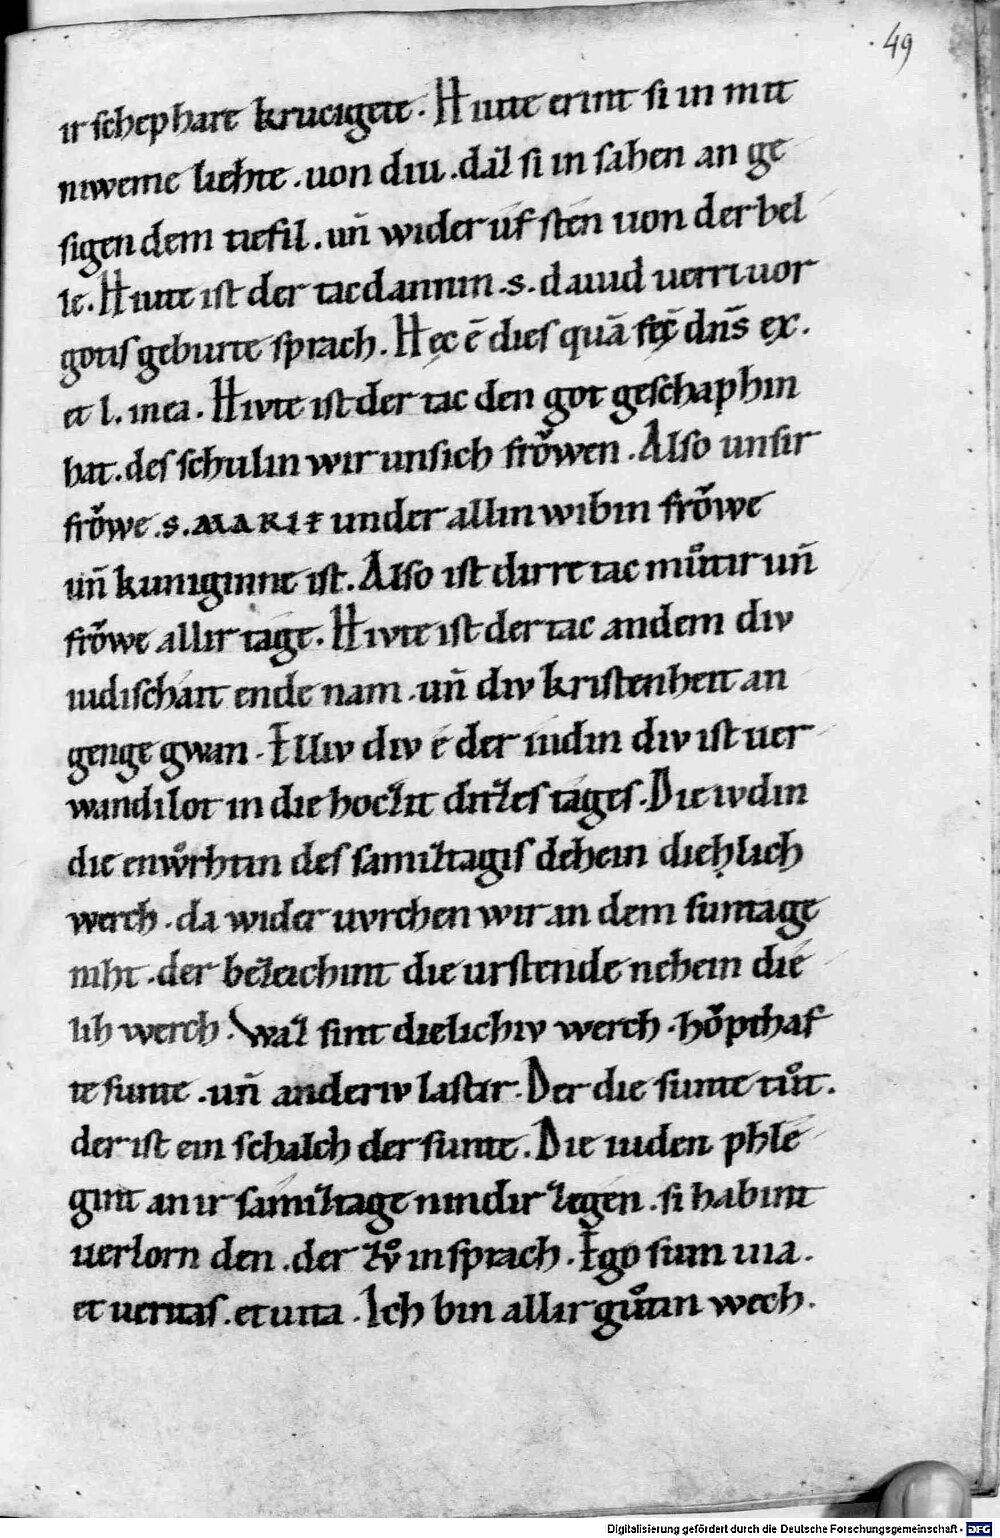 49
ir schephare krucigete. Hiute erint si in mit
niweme liehte. von diu. daz si in sahen an ge
sigen dem tiefil. vn̄ wider uf sten uon der hel
le. Hiute ist der tac dannin .s. dauid uerri uor
gotis geburte sprach. Hęc ē dies quā fec̄ dn̄s ex.
et l. in ea. Hivte ist der tac den got geschaphin
hat. des schulin wir unsich frowͤen. Also unsir
froͮwe .s. MARIE under allin wibin froͮwe
un̄ kuniginne ist. Also ist dirre tac muͦtir un̄
froͮwe allir tage. Hivte ist der tac an dem div
iudischáit ende nam. un̄ div kristenheit an
genge gwan. Elliv div é der iudin div ist uer
wandilot in die hoczit ditzes tages. Die ivdin
die enwͦrhtin des samiztagis dehein diehlich
werch. da wider uvrchen wir an dem suntage
niht. der bezeichint die urstende nehein die
lih werch. Waz sint dielichiv werch. hoͮpthaf
te sunte. un̄ anderiv lastir. Der die sunte tuͦt.
der ist ein schalch der sunte. Die iuden phle
gint an ir samiztage nindir zegen. si habint
uerlorn den. der zvͦ in sprach. Ego sum uia.
et ueritas. et uita. Ich bin allir guͦtin wech.
Digitalisierung gefördert durch die Deutsche Forschungsgemeinschaft - DFG